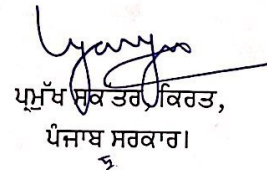 ਪ੍ਰਮੁੱਖ ਸਕੱਤਰ, ਕਿਰਤ,
ਪੰਜਾਬ ਸਰਕਾਰ।